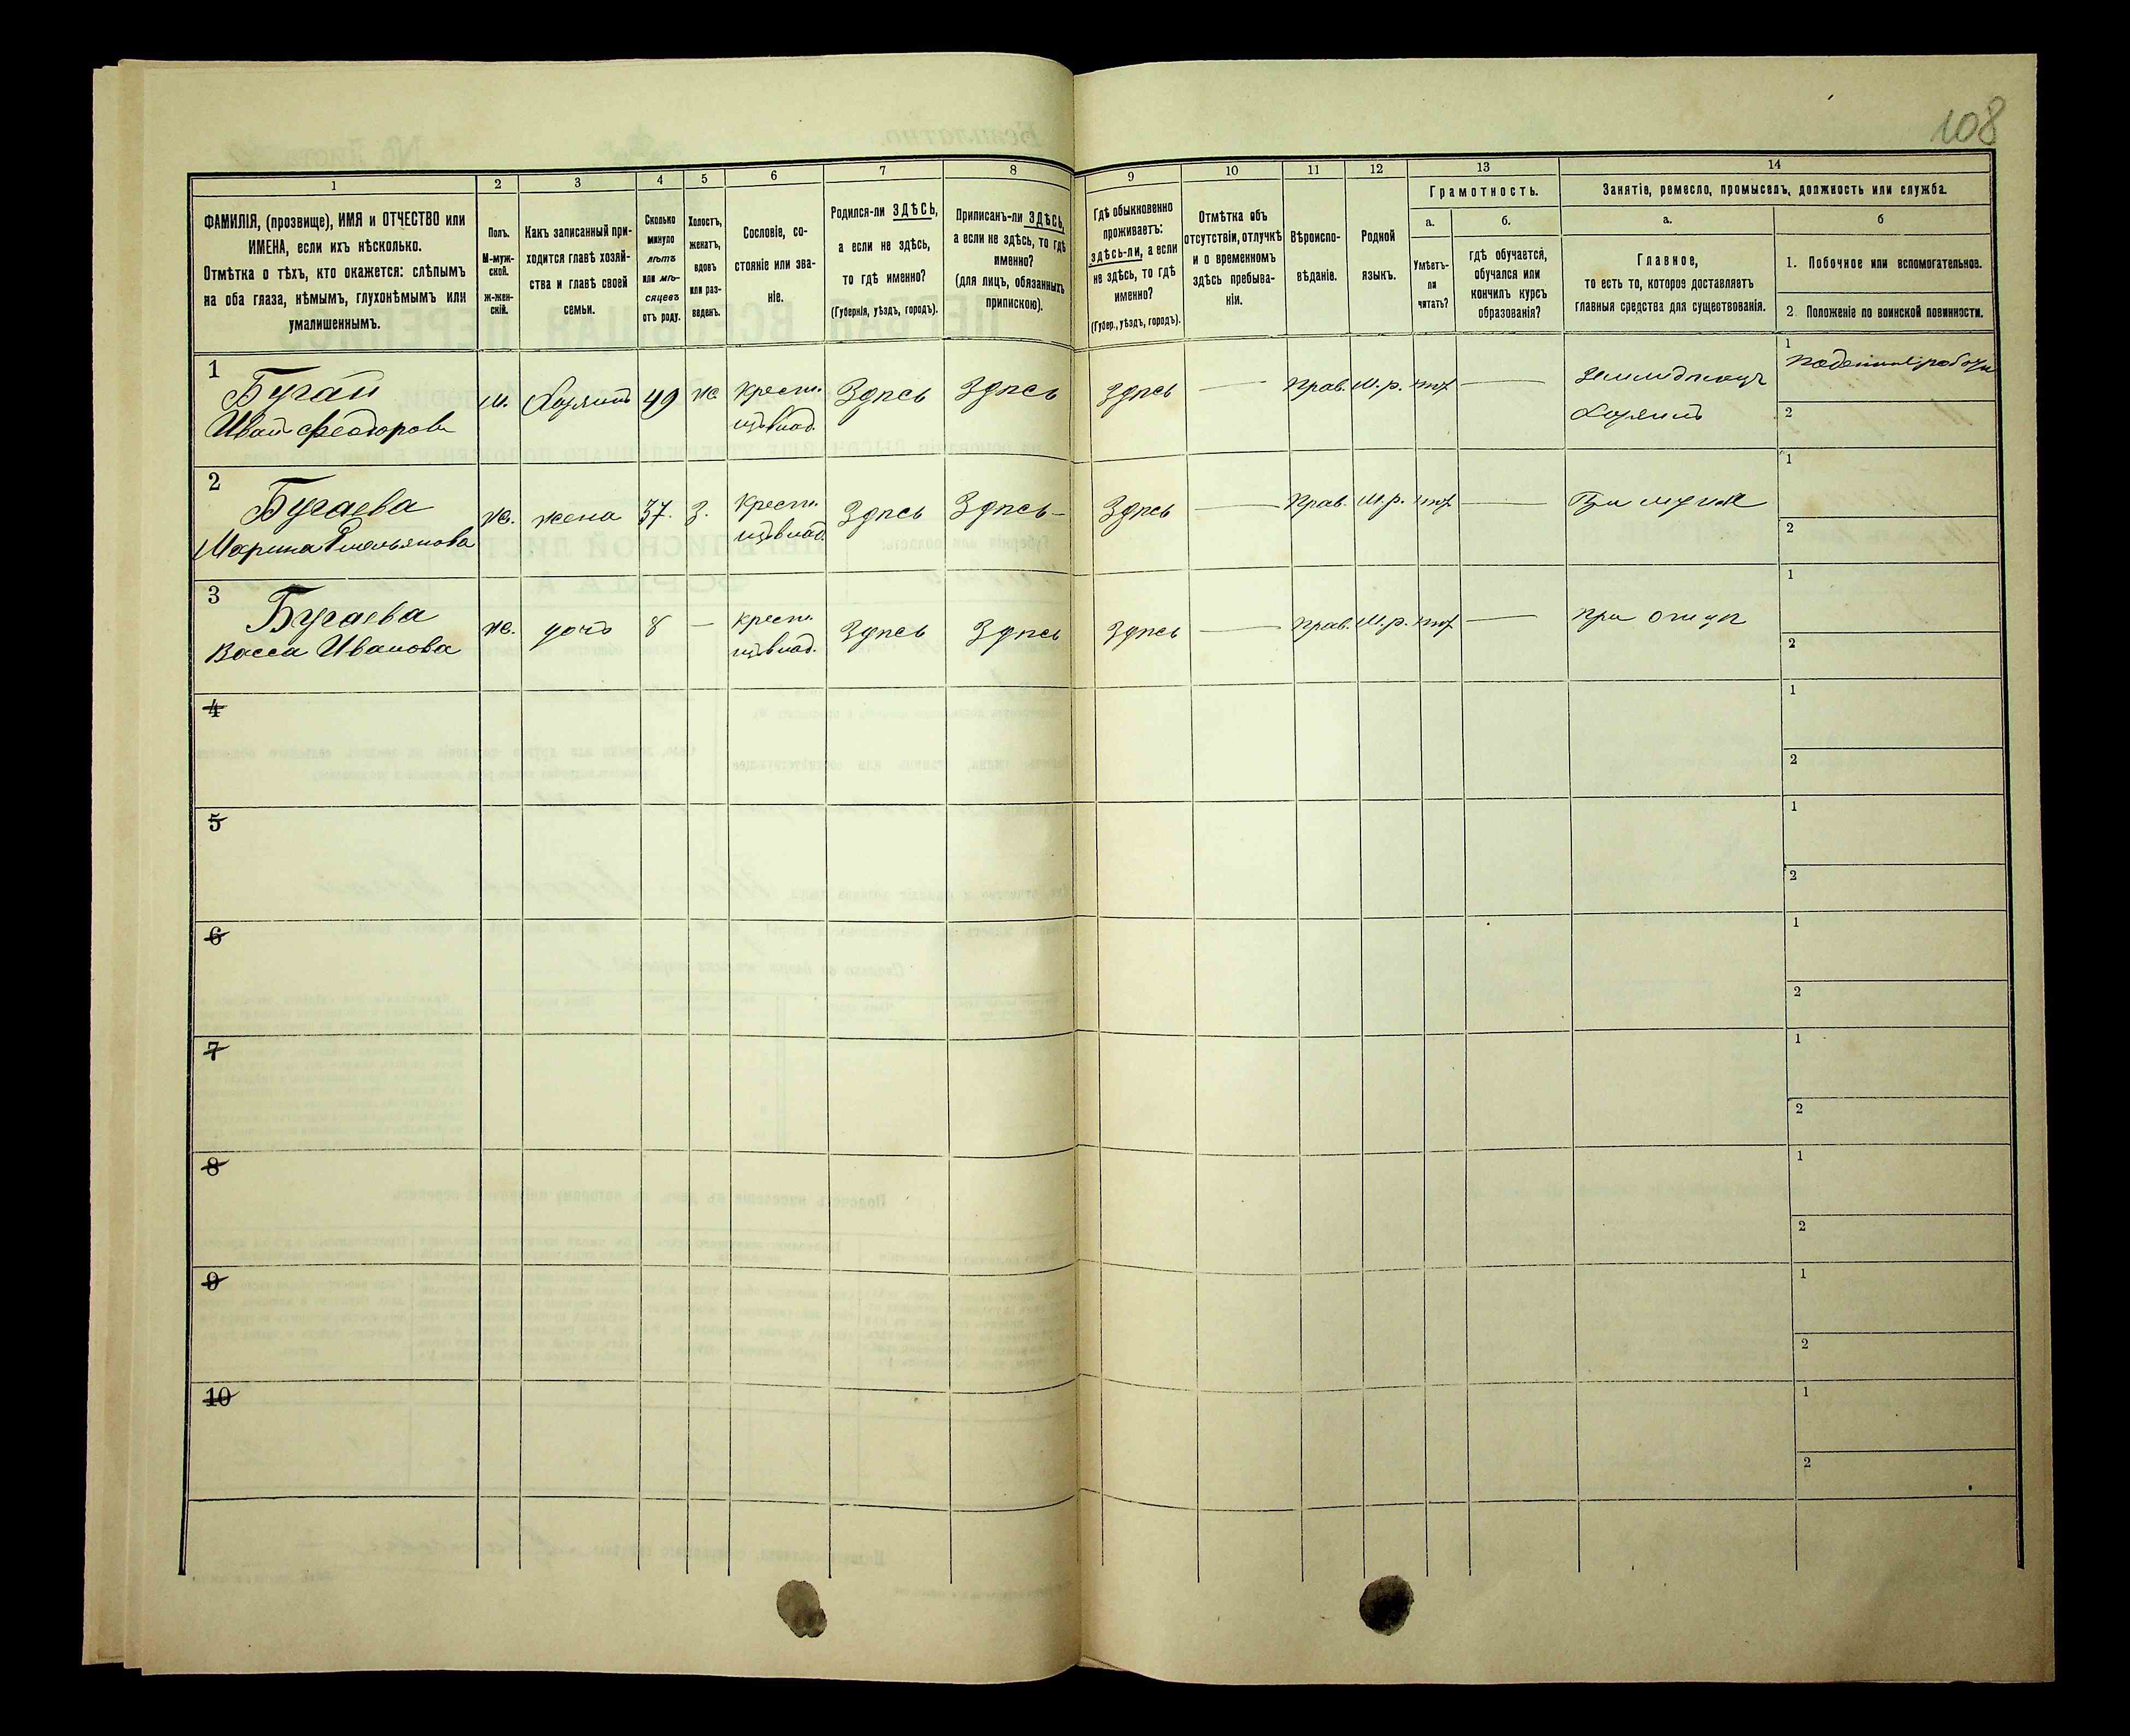 108
1
2
3
4
5
6
7
8
9
10
11
12
13
14
ФАМИЛІЯ, (прозвище), ИМЯ и ОТЧЕСТВО или
ИМЕНА, если ихъ нѣсколько.
Отмѣтка о тѣхъ, кто окажется: слѣпымъ
на оба глаза, нѣмымъ, глухонѣмымъ или
умалишеннымъ.
Полъ.
М-муж-
ской.
ж-жен-
скій.
Какъ записанный при-
ходится главѣ хозяй-
ства и главѣ своей
семьи.
Сколько
минуло
лѣтъ
или мѣ-
сяцевъ
отъ роду.
Холостъ,
женатъ,
вдовъ
или раз-
веденъ.
Сословіе, со-
стояніе или зва-
ніе.
Родился-ли ЗДѢСЬ,
а если не здѣсь,
то гдѣ именно?
(Губернія, уѣздъ, городъ).
Приписанъ-ли ЗДѢСЬ,
а если не здѣсь, то гдѣ
именно?
(для лицъ, обязанныхъ
припискою).
Гдѣ обыкновенно
проживаетъ:
здѣсь-ли, а если
не здѣсь, то гдѣ
именно?
(Губер., уѣздъ, городъ).
Отмѣтка объ
отсутствіи, отлучкѣ
и о временномъ
здѣсь пребыва-
ніи.
Вѣроиспо-
вѣданіе.
Родной
языкъ.
Грамотность.
а.
Умѣетъ-
ли
читать?
б.
гдѣ обучается,
обучался или
кончилъ курсъ
образованія?
Занятіе, ремесло, промыселъ, должность или служба.
а.
Главное,
то есть то, которое доставляетъ
главныя средства для существованія.
б
1. Побочное или вспомогательное.
2. Положеніе по воинской повинности.
1
Бугай
Иван Феодоров
м.
Хозяинъ
49
ж.
крест.
Здѣсь
Здѣсь
Здѣсь
—
Прав.
м.р.
—
Хозяинъ
1
2
2
Бугаева
Марина Емельянова
ж.
жена
37.
з.
Крест.
Здѣсь
Здѣсь
Здѣсь
—
Прав.
м.р.
—
При мужѣ
1
2
3
Бугаева
Васса Иванова
ж.
дочь
8
—
крест.
Здѣсь
Здѣсь
Здѣсь
—
Прав.
м.р.
—
при отцѣ
1
2
4
1
2
5
1
2
6
1
2
7
1
2
8
1
2
9
1
2
10
1
2